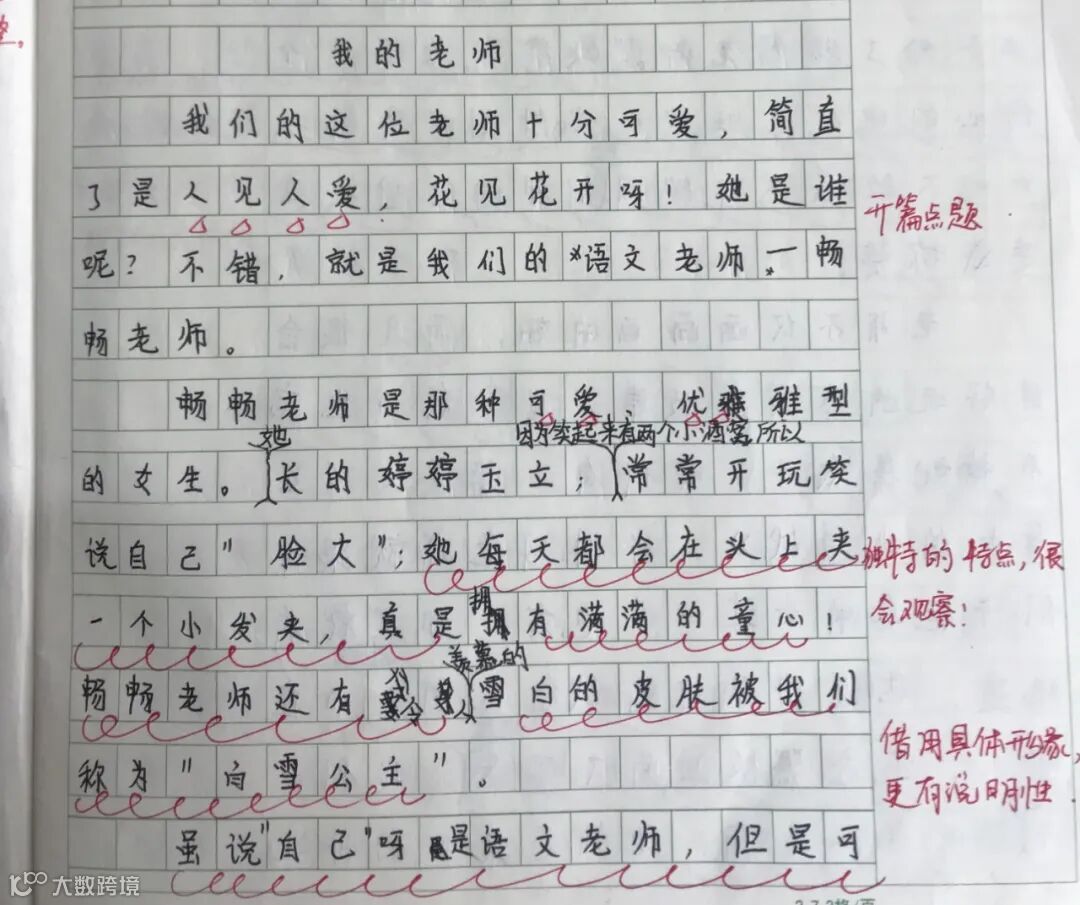 我的老师
我们的这位老师十分可爱，简直
了是人见人爱，花见花开呀！她是谁
开篇点题
呢？不错，就是我们的语文老师—畅
畅老师。
畅畅老师是那种可爱、优雅雅型
她
因为笑起来有两个小酒窝，所以
的女生。长的婷婷玉立；常常开玩笑
说自己"脸大"；她每天都会在头上夹
独特的特点，很
会观察！
拥
一个小发夹，真是有满满的童心！
羡慕的
畅畅老师还有令人雪白的皮肤被我们
称为"白雪公主"。
借用具体形象，
更有说明性
虽说"自己"呀是语文老师，但是可
大数跨境